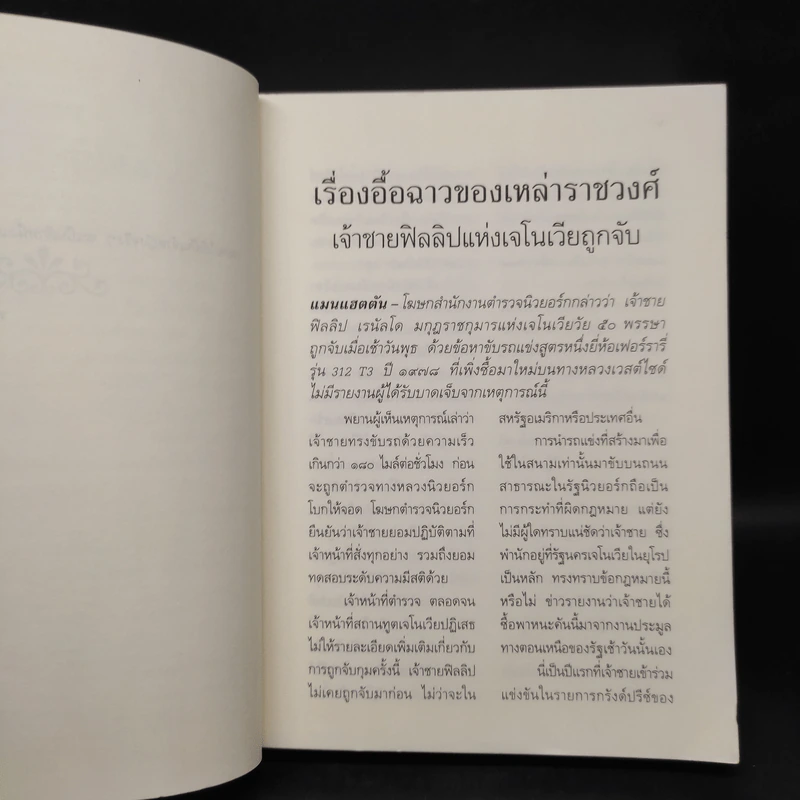 เรื่องอื้อฉาวของเหล่าราชวงศ์
เจ้าชายฟิลลิปแห่งเจโนเวียถูกจับ
แมนแฮตตัน – โฆษกสำนักงานตำรวจนิวยอร์กกล่าวว่า เจ้าชาย
ฟิลลิป เรนัลโด มกุฎราชกุมารแห่งเจโนเวียวัย ๕๐ พรรษา
ถูกจับเมื่อเช้าวันพุธ ด้วยข้อหาขับรถแข่งสูตรหนึ่งยี่ห้อเฟอร์รารี่
รุ่น 312 T3 ปี ๑๙๗๘ ที่เพิ่งซื้อมาใหม่บนทางหลวงเวสต์ไซด์
ไม่มีรายงานผู้ได้รับบาดเจ็บจากเหตุการณ์นี้
พยานผู้เห็นเหตุการณ์เล่าว่า
เจ้าชายทรงขับรถด้วยความเร็ว
เกินกว่า ๑๘๐ ไมล์ต่อชั่วโมง ก่อน
จะถูกตำรวจทางหลวงนิวยอร์ก
โบกให้จอด โฆษกตำรวจนิวยอร์ก
ยืนยันว่าเจ้าชายยอมปฏิบัติตามที่
เจ้าหน้าที่สั่งทุกอย่าง รวมถึงยอม
ทดสอบระดับความมีสติด้วย
เจ้าหน้าที่ตำรวจ ตลอดจน
เจ้าหน้าที่สถานทูตเจโนเวียปฏิเสธ
ไม่ให้รายละเอียดเพิ่มเติมเกี่ยวกับ
การถูกจับกุมครั้งนี้ เจ้าชายฟิลลิป
ไม่เคยถูกจับมาก่อน ไม่ว่าจะใน
สหรัฐอเมริกาหรือประเทศอื่น
การนำรถแข่งที่สร้างมาเพื่อ
ใช้ในสนามเท่านั้นมาขับบนถนน
สาธารณะในรัฐนิวยอร์กถือเป็น
การกระทำที่ผิดกฎหมาย แต่ยัง
ไม่มีผู้ใดทราบแน่ชัดว่าเจ้าชาย ซึ่ง
พำนักอยู่ที่รัฐนครเจโนเวียในยุโรป
เป็นหลัก ทรงทราบข้อกฎหมายนี้
หรือไม่ ข่าวรายงานว่าเจ้าชายได้
ซื้อพาหนะคันนี้มาจากงานประมูล
ทางตอนเหนือของรัฐเช้าวันนั้นเอง
นี่เป็นปีแรกที่เจ้าชายเข้าร่วม
แข่งขันในรายการกรังด์ปรีซ์ของ